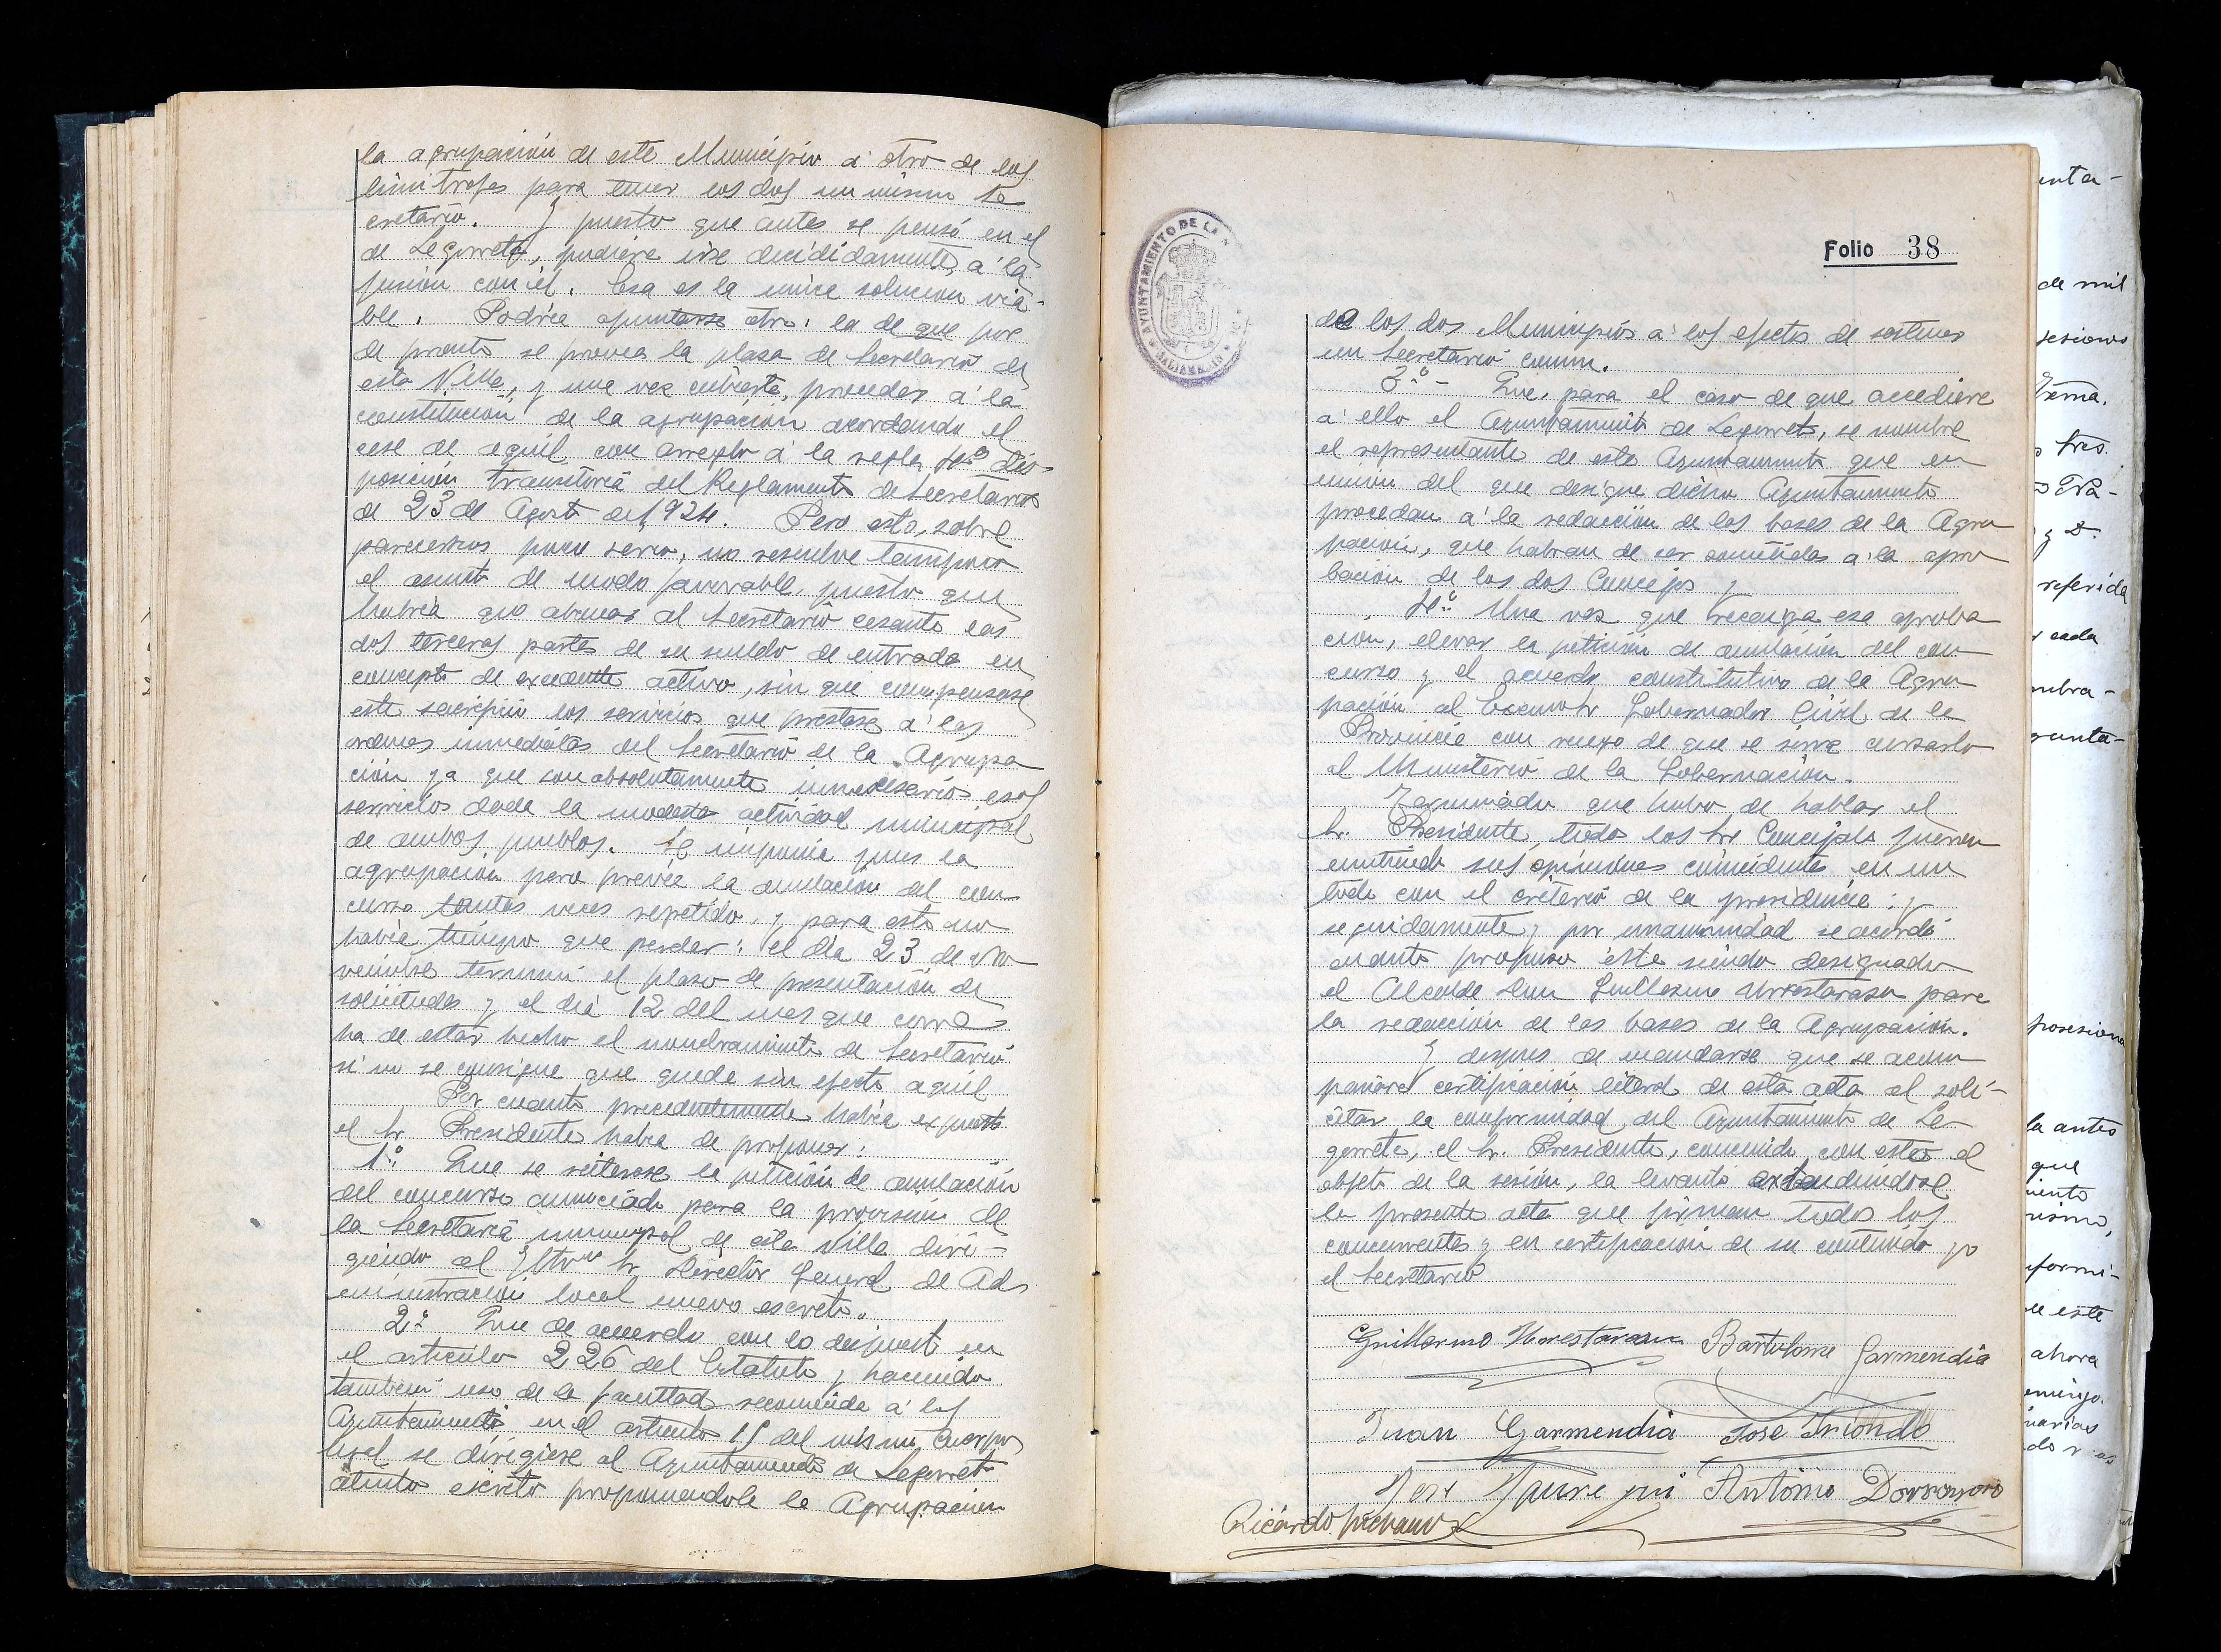 la agrupación de este Municipio á otro de los
limitrofes para tener los dos un mismo Se
cretario. Y puesto que antes se pensó en el
de Legorreta, pudiera irse decididamente á la
fusion con él. Esa es la unica solucion via-
ble. Podria apuntarse otra: la de que por
de pronto se provea la plaza de Secretario de
esta Villa, y una vez cubierta, proceder á la
constitucion de la agrupación acordando el
cese de aquél con arreglo á la regla 4ª dis-
posición transitoria del Reglamento de Secretarios
de 23 de Agosto de 1924. Pero esto, sobre
parecernos poco serio, no resuelve tampoco
el asunto de modo favorable puesto que
habria que abonar al Secretario cesante las
dos terceras partes de su sueldo de entrada en
concepto de excedente activo, sin que compensase
este sacrificio los servicios que prestase á las
ordenes inmediatas del Secretario de la Agrupa
ción ya que son absolutamente innecesarios esos
servicios dada la modesta actividad municipal
de ambos pueblos. Se imponia pues la
agrupación pero previa la anulación del con
curso tantas veces repetido, y para esto no
habia tiempo que perder: el dia 23 de No
viembre terminó el plazo de presentación de
solicitudes y el dia 12 del mes que corre
ha de estar hecho el nombramiento de Secretario
si no se consigue que quede sin efecto aquél
Por cuanto precedentemente habia expuesto
el Sr. Presidente habia de proponer:
1.º Que se reiterase la petición de anulación
del concurso anunciado para la provision de
la Secretaria municipal de esta Villa diri-
giendo al Iltmo Sr. Director General de Ad
ministración local nuevo escrito.
2.º Que de acuerdo con lo dispuesto en
el articulo 226 del Estatuto y haciendo
tambien uso de la facultad reconocida á los
Ayuntamientos en el articulo 15 del mismo cuerpo
legal se dirigiese al Ayuntamiento de Legorreta
atento escrito proponiendole la Agrupación
AYUNTAMIENTO DE LA
Folio 38
de los dos Municipios á los efectos de sostener
un Secretario comun.
3.º - Que, para el caso de que accediere
á ello el Ayuntamiento de Legorreta, se nombre
el representante de este Ayuntamiento que en
union del que designe dicho Ayuntamiento
procedan á la redacción de las bases de la Agru
pación, que habran de ser sometidas á la apro
bación de los dos Concejos y
4.º Una vez que recaiga esa aproba
ción, elevar la petición de anulación del con
curso y el acuerdo constitutivo de la Agru
pación al Excmo Sr Gobernador Civil de la
Provincia con ruego de que se sirva cursarlo
al Ministerio de la Gobernación.
Terminado que hubo de hablar el
Sr. Presidente, todos los Sres Concejales fueron
emitiendo sus opiniones coincidentes en un
todo con el criterio de la presidencia; y
seguidamente y por unanimidad se acordó
cuanto propuso éste siendo designado
el Alcalde Don Guillermo Urrestarazu para
la redacción de las bases de la Agrupación.
Y despues de mandarse que se acom
pañare certificación literal de esta acta al soli-
citar la conformidad del Ayuntamiento de Le-
gorreta, el Sr. Presidente, concluido con esto el
objeto de la sesión, la levantó extendiéndose
la presente acta que firman todos los
concurrentes y en certificacion de su contenido yo
el Secretario
Guillermo Urrestarazu Bartolome Garmendia
Juan Garmendia Jose Iriondo
Jose Jauregui Antonio Dorronsoro
Ricardo
unta-
de mil
sesiones
tres.
referida
cada
mbra-
yunta-
posesiona
la antes
que
miento
mismo,
nformi-
en este
ahora
omingo.
narias